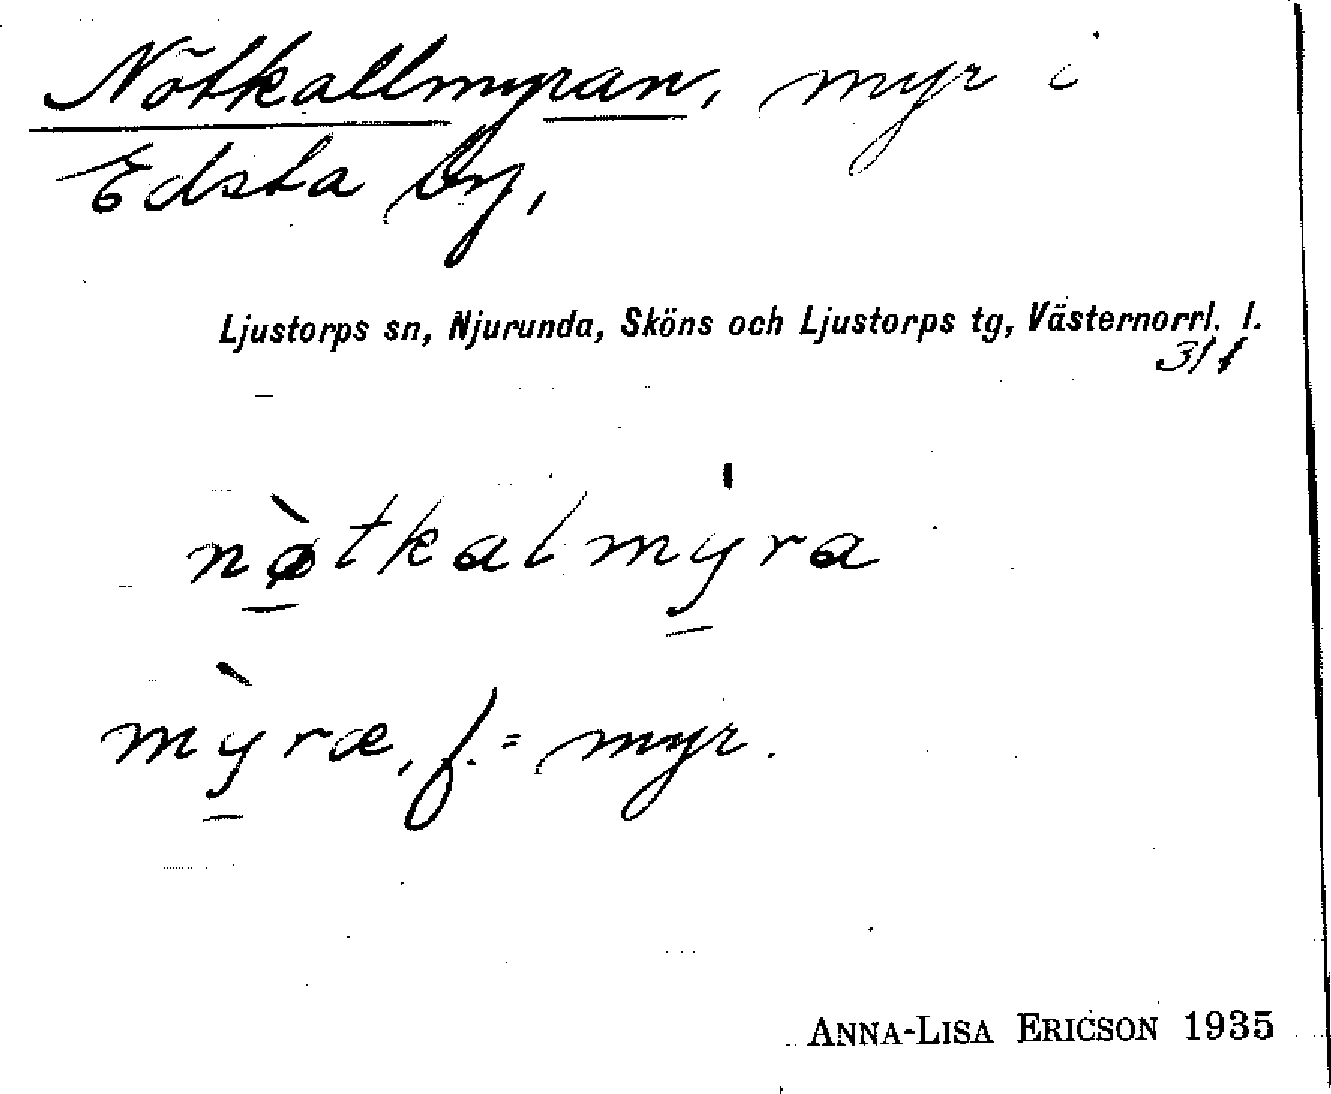 Nötkallmyran, myr i
Edsta by,
Ljustorps sn, Njurunda, Sköns och Ljustorps tg, Västernorrl. l.
nø̀tkalmy̍ra
mỳræ, f. = myr.
ANNA-LISA ERICSON 1935